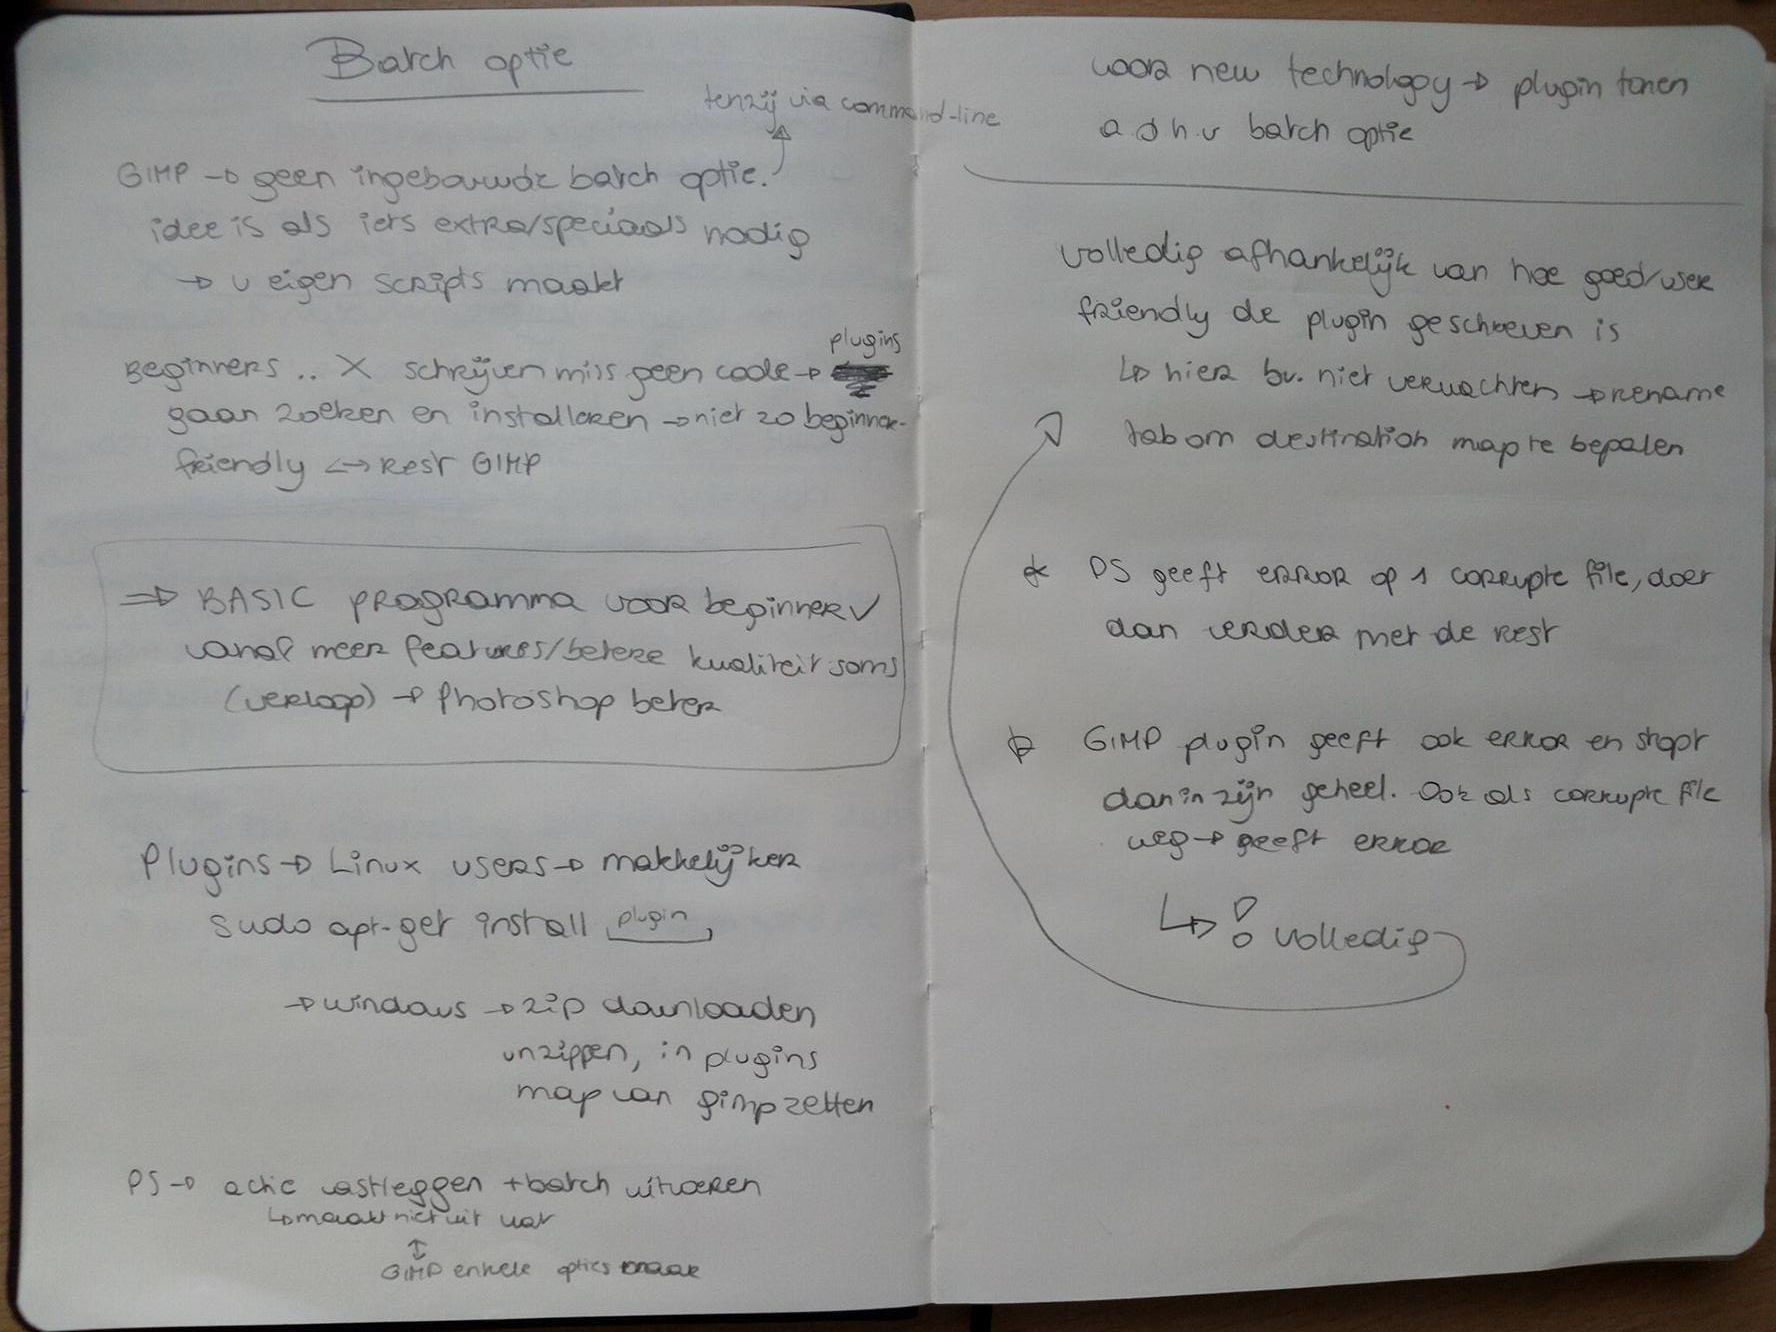 Batch optie
tenzij via command-line
GIMP → geen ingebouwde batch optie.
idee is als iets extra/speciaals nodig
→ u eigen scripts maakt
Beginners .. X schrijven miss geen code → plugins
gaan zoeken en installeren → niet zo beginner-
friendly ↔ rest GIMP
⇒ BASIC programma voor beginner ✓
vanaf meer features/betere kwaliteit soms
(verloop) → Photoshop beter
Plugins → Linux users → makkelijker
sudo apt-get install plugin
→ windows → zip downloaden
unzippen, in plugins
map van gimp zetten
PS → actie vastleggen + batch uitvoeren
↳ maakt niet uit wat
↕
GIMP enkele opties maar
voor new technology → plugin tonen
a d h v batch optie
volledig afhankelijk van hoe goed/user
friendly de plugin geschreven is
↳ hier bv. niet verwachten → rename
tab om destination map te bepalen
* PS geeft error op 1 corrupte file, doet
dan verder met de rest
GIMP plugin geeft ook error en stopt
dan in zijn geheel. Ook als corrupte file
weg → geeft error
↳ ! volledig